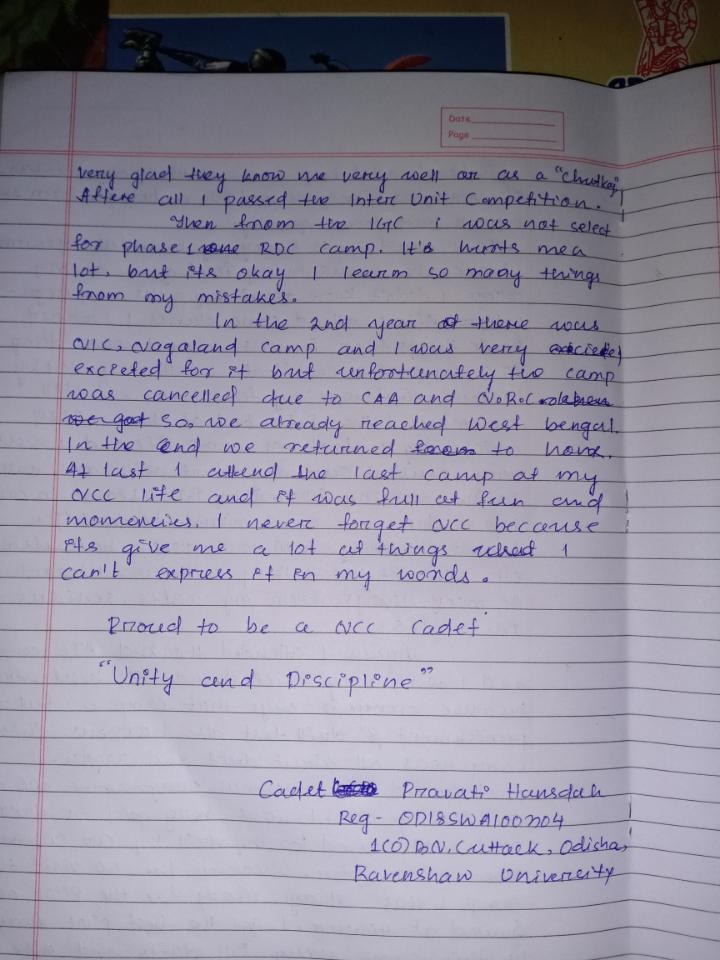 Date
Page
very glad they know me very well or as a "Chutkey"
Aftere all I passed the Inter Unit Competition.
Then from the IGC i was not select
for phase 1 RDC camp. It's hurrts me a
lot. but its okay I learn so many things
from my mistakes.
In the 2nd year there was
NIC, Nagaland camp and I was very
excieted for it but unfortunately the camp
was cancelled due to CAA and N.R.C.
so, we already reached West bengal.
In the end we returned to home.
At last I attend the last camp of my
NCC life and it was full of fun and
momories. I never forget NCC because
its give me a lot of things what I
can't express it in my words.
Proud to be a NCC Cadet
"Unity and Discipline"
Cadet Pravati Hansdah
Reg - OD18SWA100204
1(O) BN, Cuttack, Odisha,
Ravenshaw University